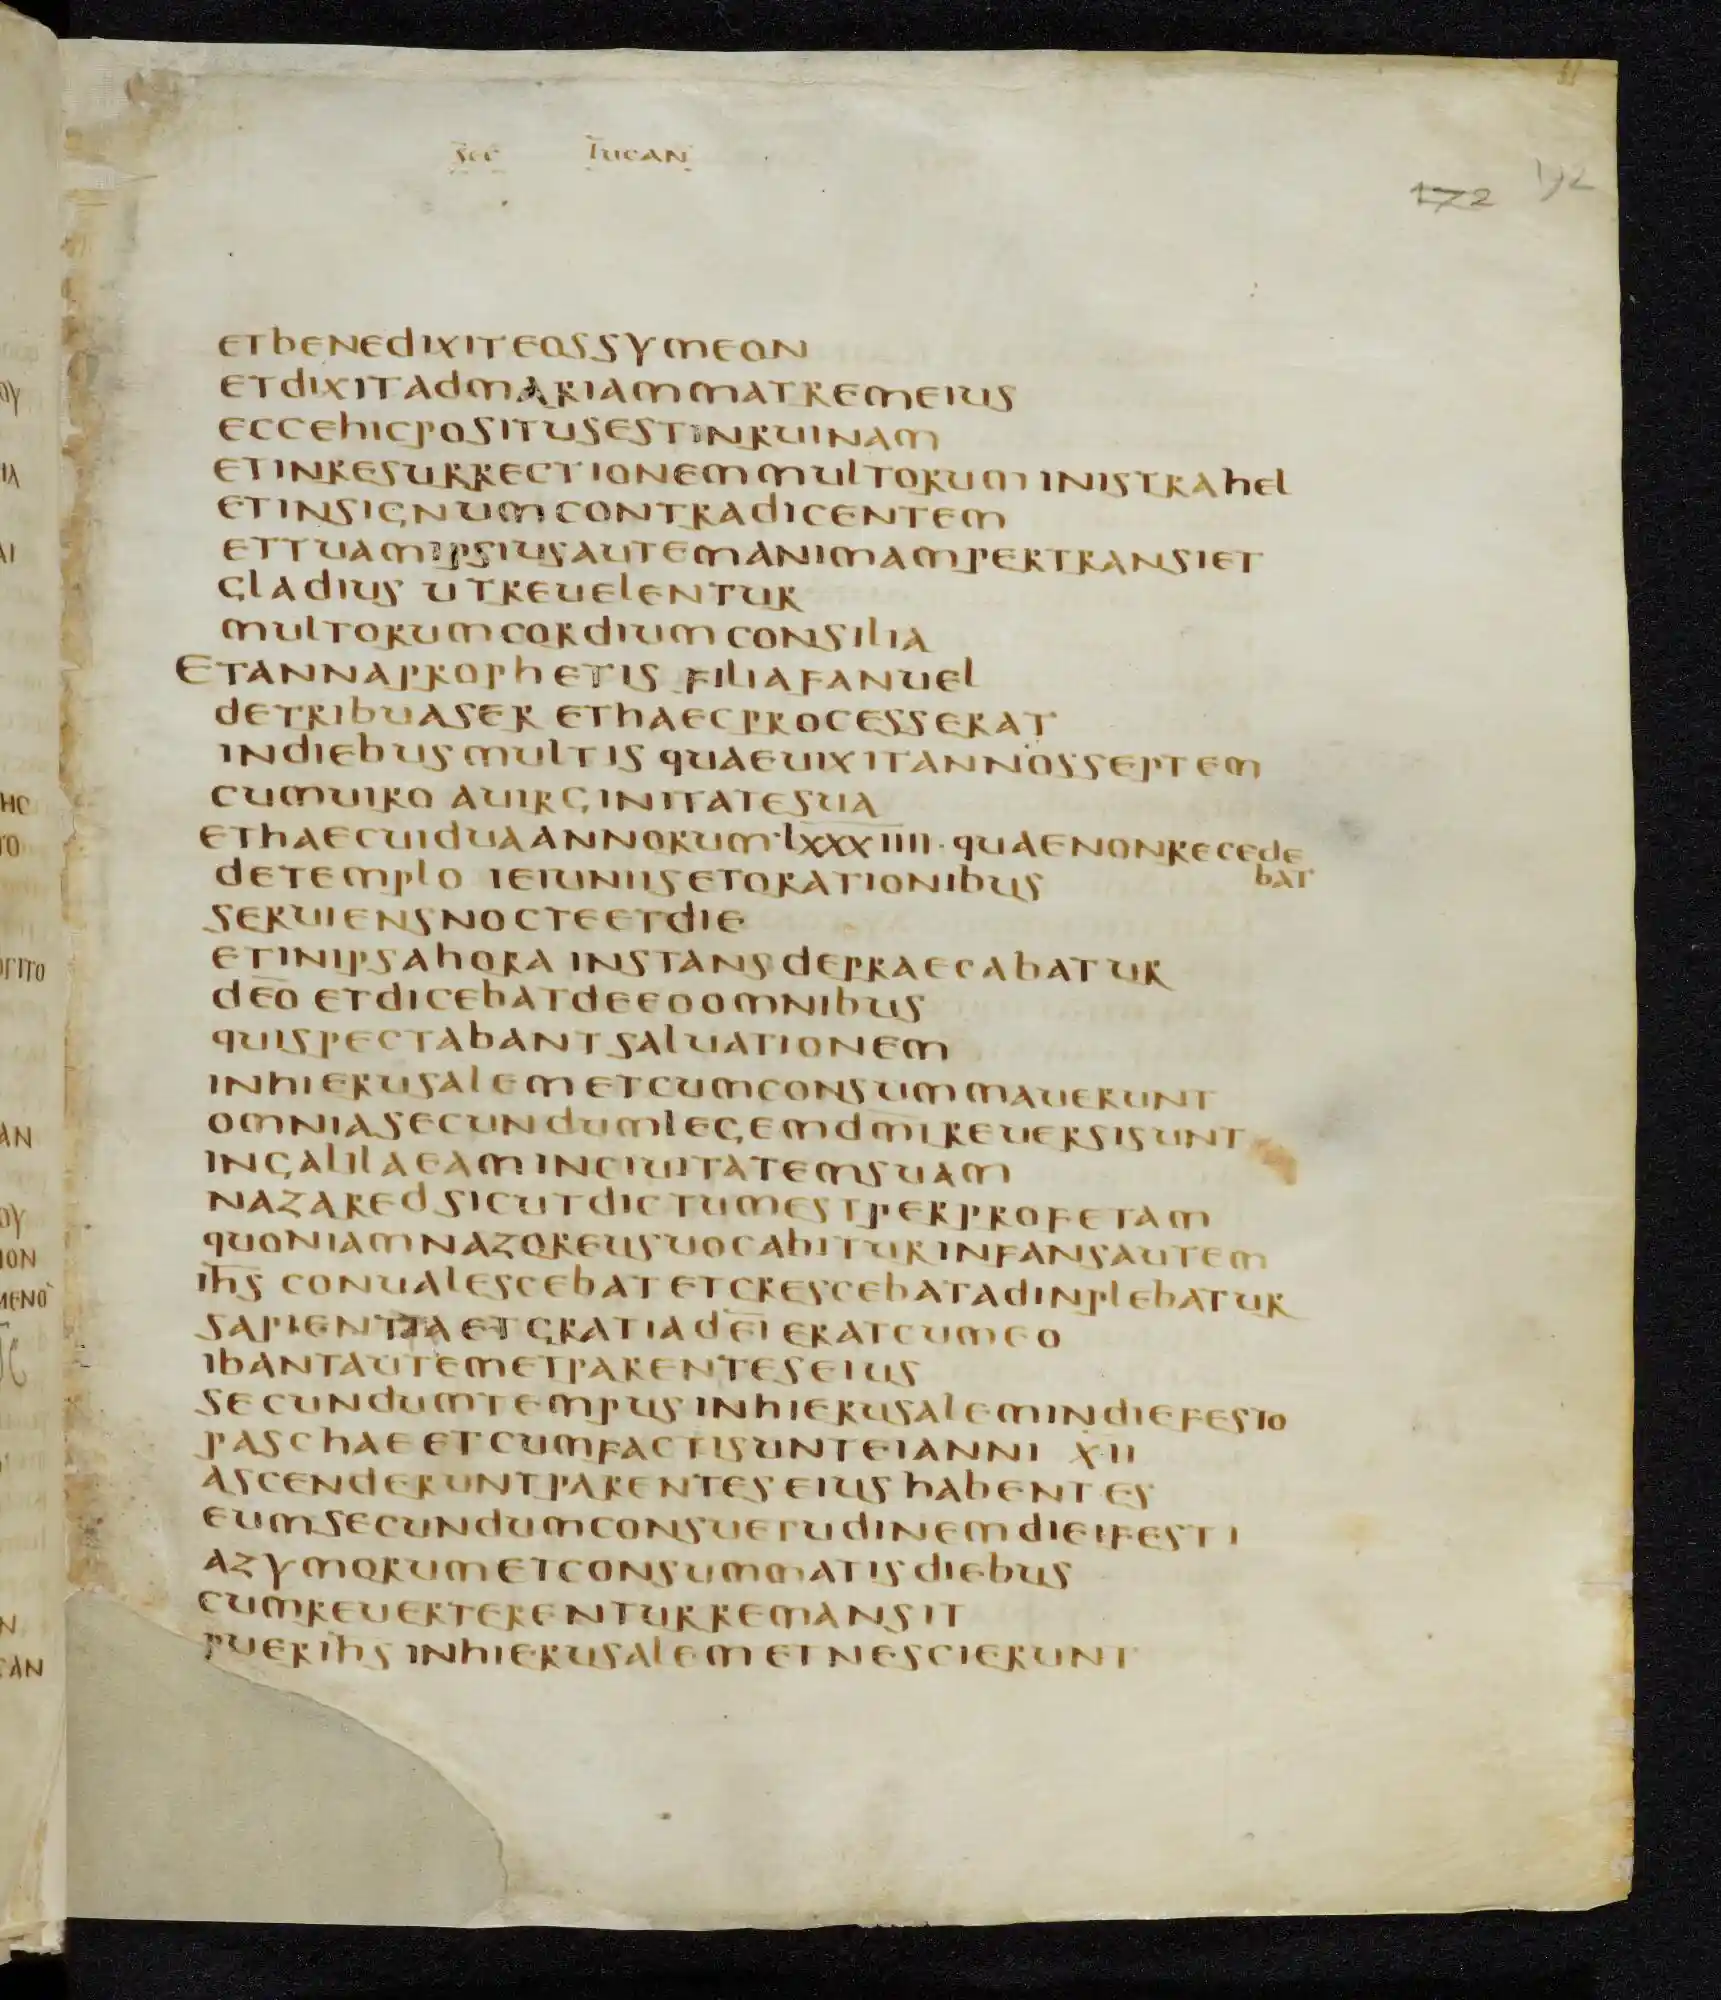 sec lucan
172 192
etbenedixiteossymeon
etdixitadmariammatremeius
eccehicpositusestinruinam
etinresurrectionemmultoruministrahel
etinsignumcontradicentem
ettuamipsiusautemanimampertransiet
gladius utreuelentur
multorumcordiumconsilia
Etannaprophetis filiafanuel
detribuaser ethaecprocesserat
indiebusmultis quaeuixitannosseptem
cumuiro auirginitatesua
ethaecuiduaannorum·lxxxiiii· quaenonrecede
bat
detemplo ieiuniisetorationibus
seruiensnocteetdie
etinipsahora instans depraecabatur
dēo etdicebatdeeoomnibus
quispectabantsaluationem
inhierusalemetcumconsummauerunt
omniasecundumlegemdm̄ireuersisunt
ingalilaeaminciuitatemsuam
nazaredsicutdictumestperprofetam
quoniamnazoreusuocabiturinfansautem
ih̄s conualescebatetcrescebatadinplebatur
sapientiaetgratiadēieratcumeo
ibantautemetparenteseius
secundumtempusinhierusalemindiefesto
paschaeetcumfactisunteianni xii
ascenderuntparenteseiushabentes
eumsecundumconsuetudinemdieifesti
azymorumetconsummatisdiebus
cumreuerterenturremansit
puerih̄sinhierusalemetnescierunt